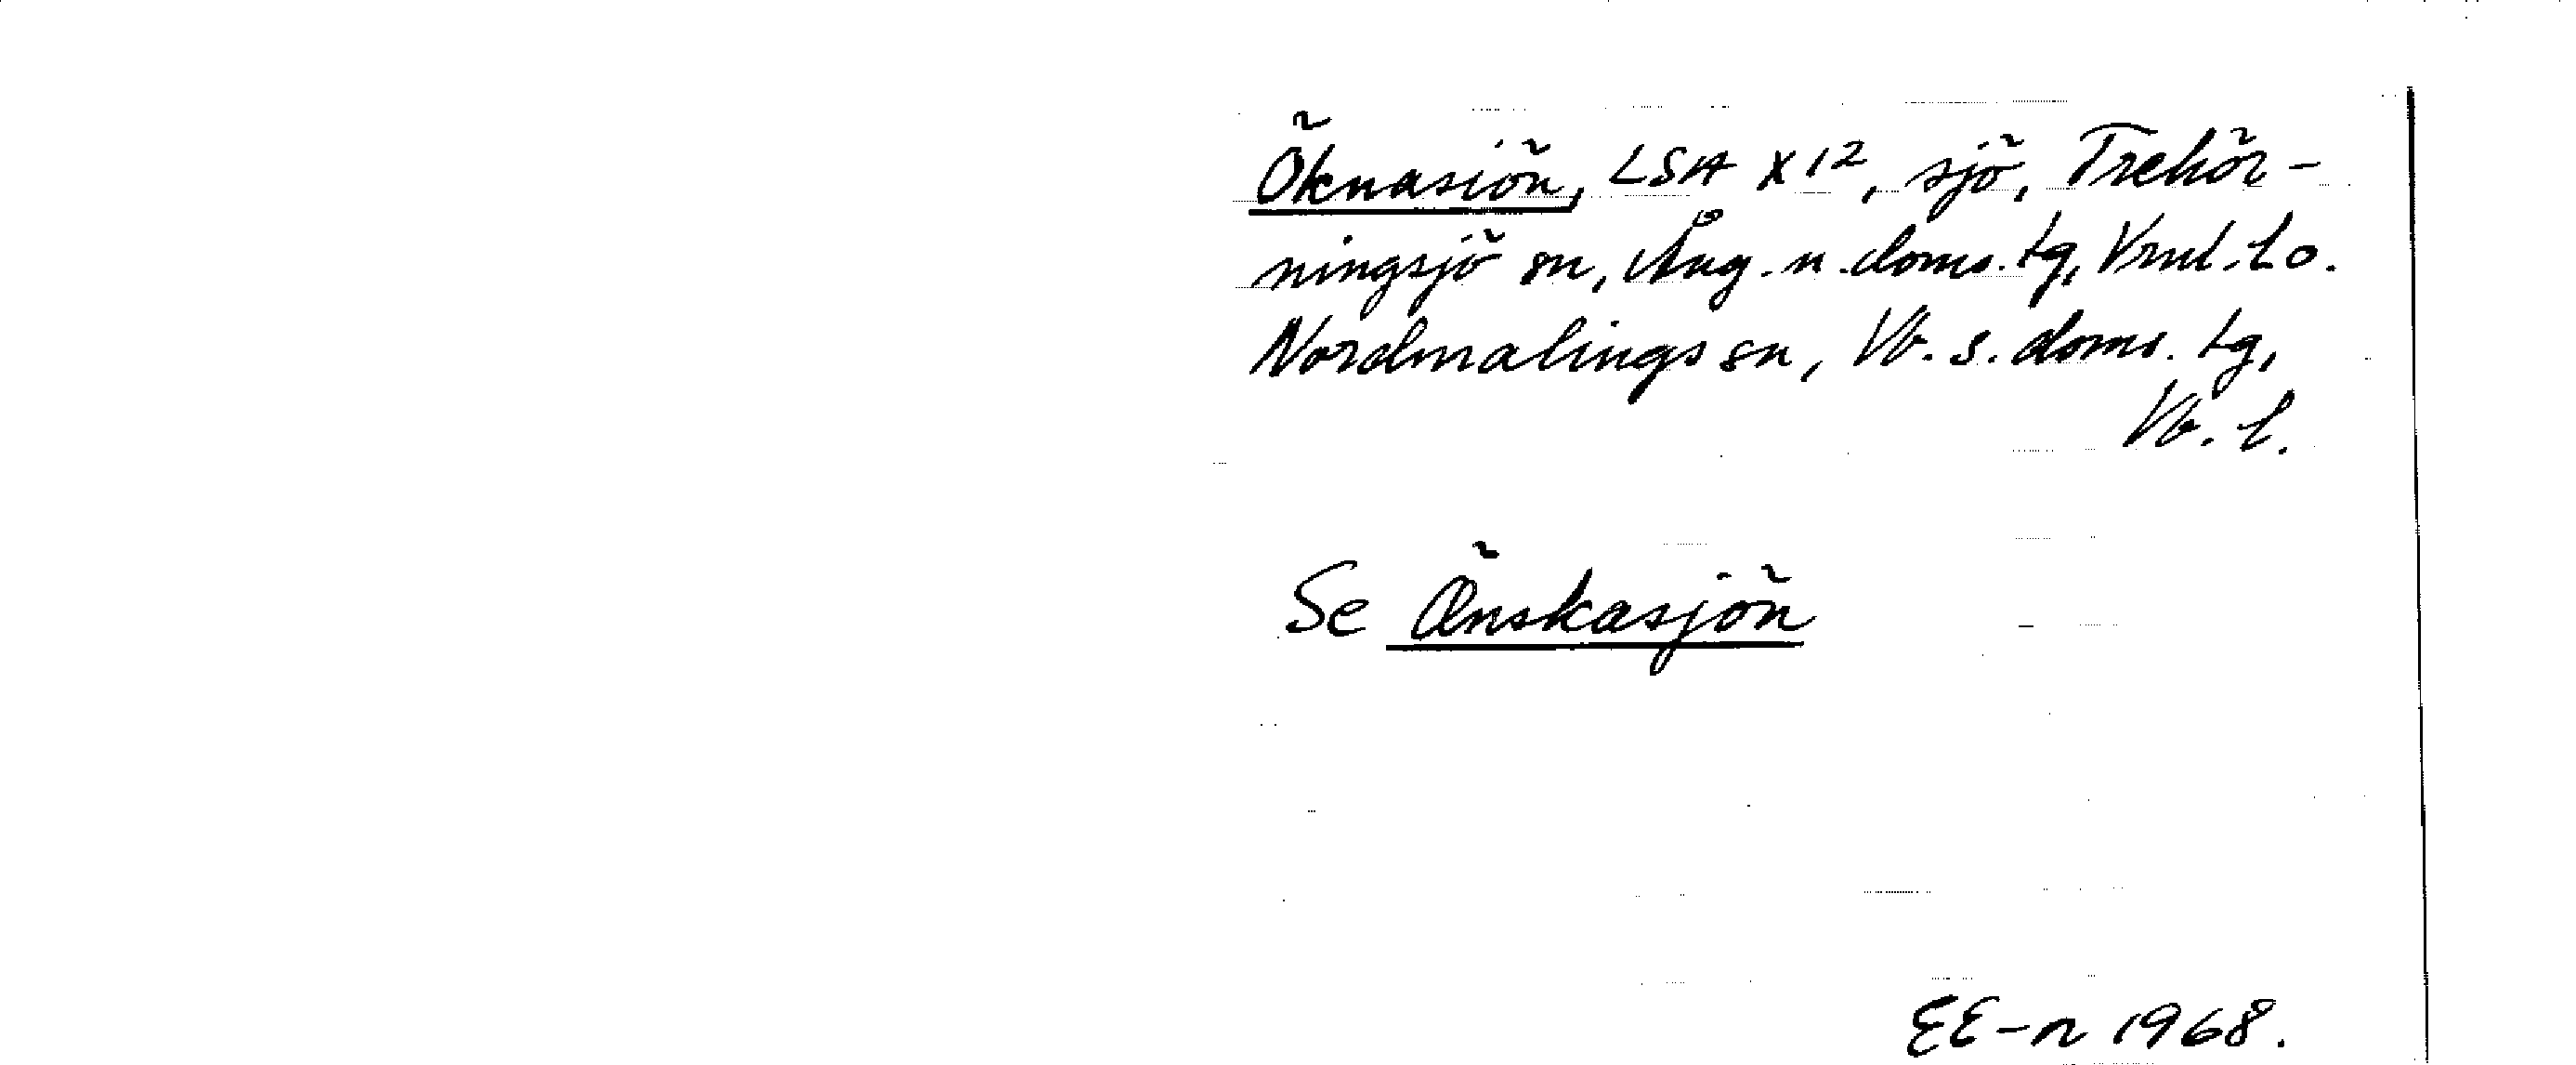 Öknasiön, LSA X12, sjö, Trehör-
ningsjö sn, Ång. n. doms. tg, Vrnl. l o.
Nordmalings sn, Vb. s. doms. tg,
Vb. l.
Se Önskasjön
EE-n 1968.